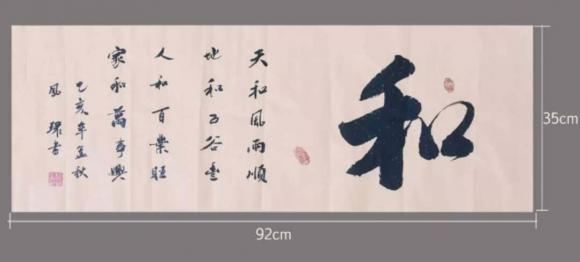 和
天和風雨順
地和五谷豐
人和百業旺
家和萬事興
己亥年孟秋
35cm
92cm